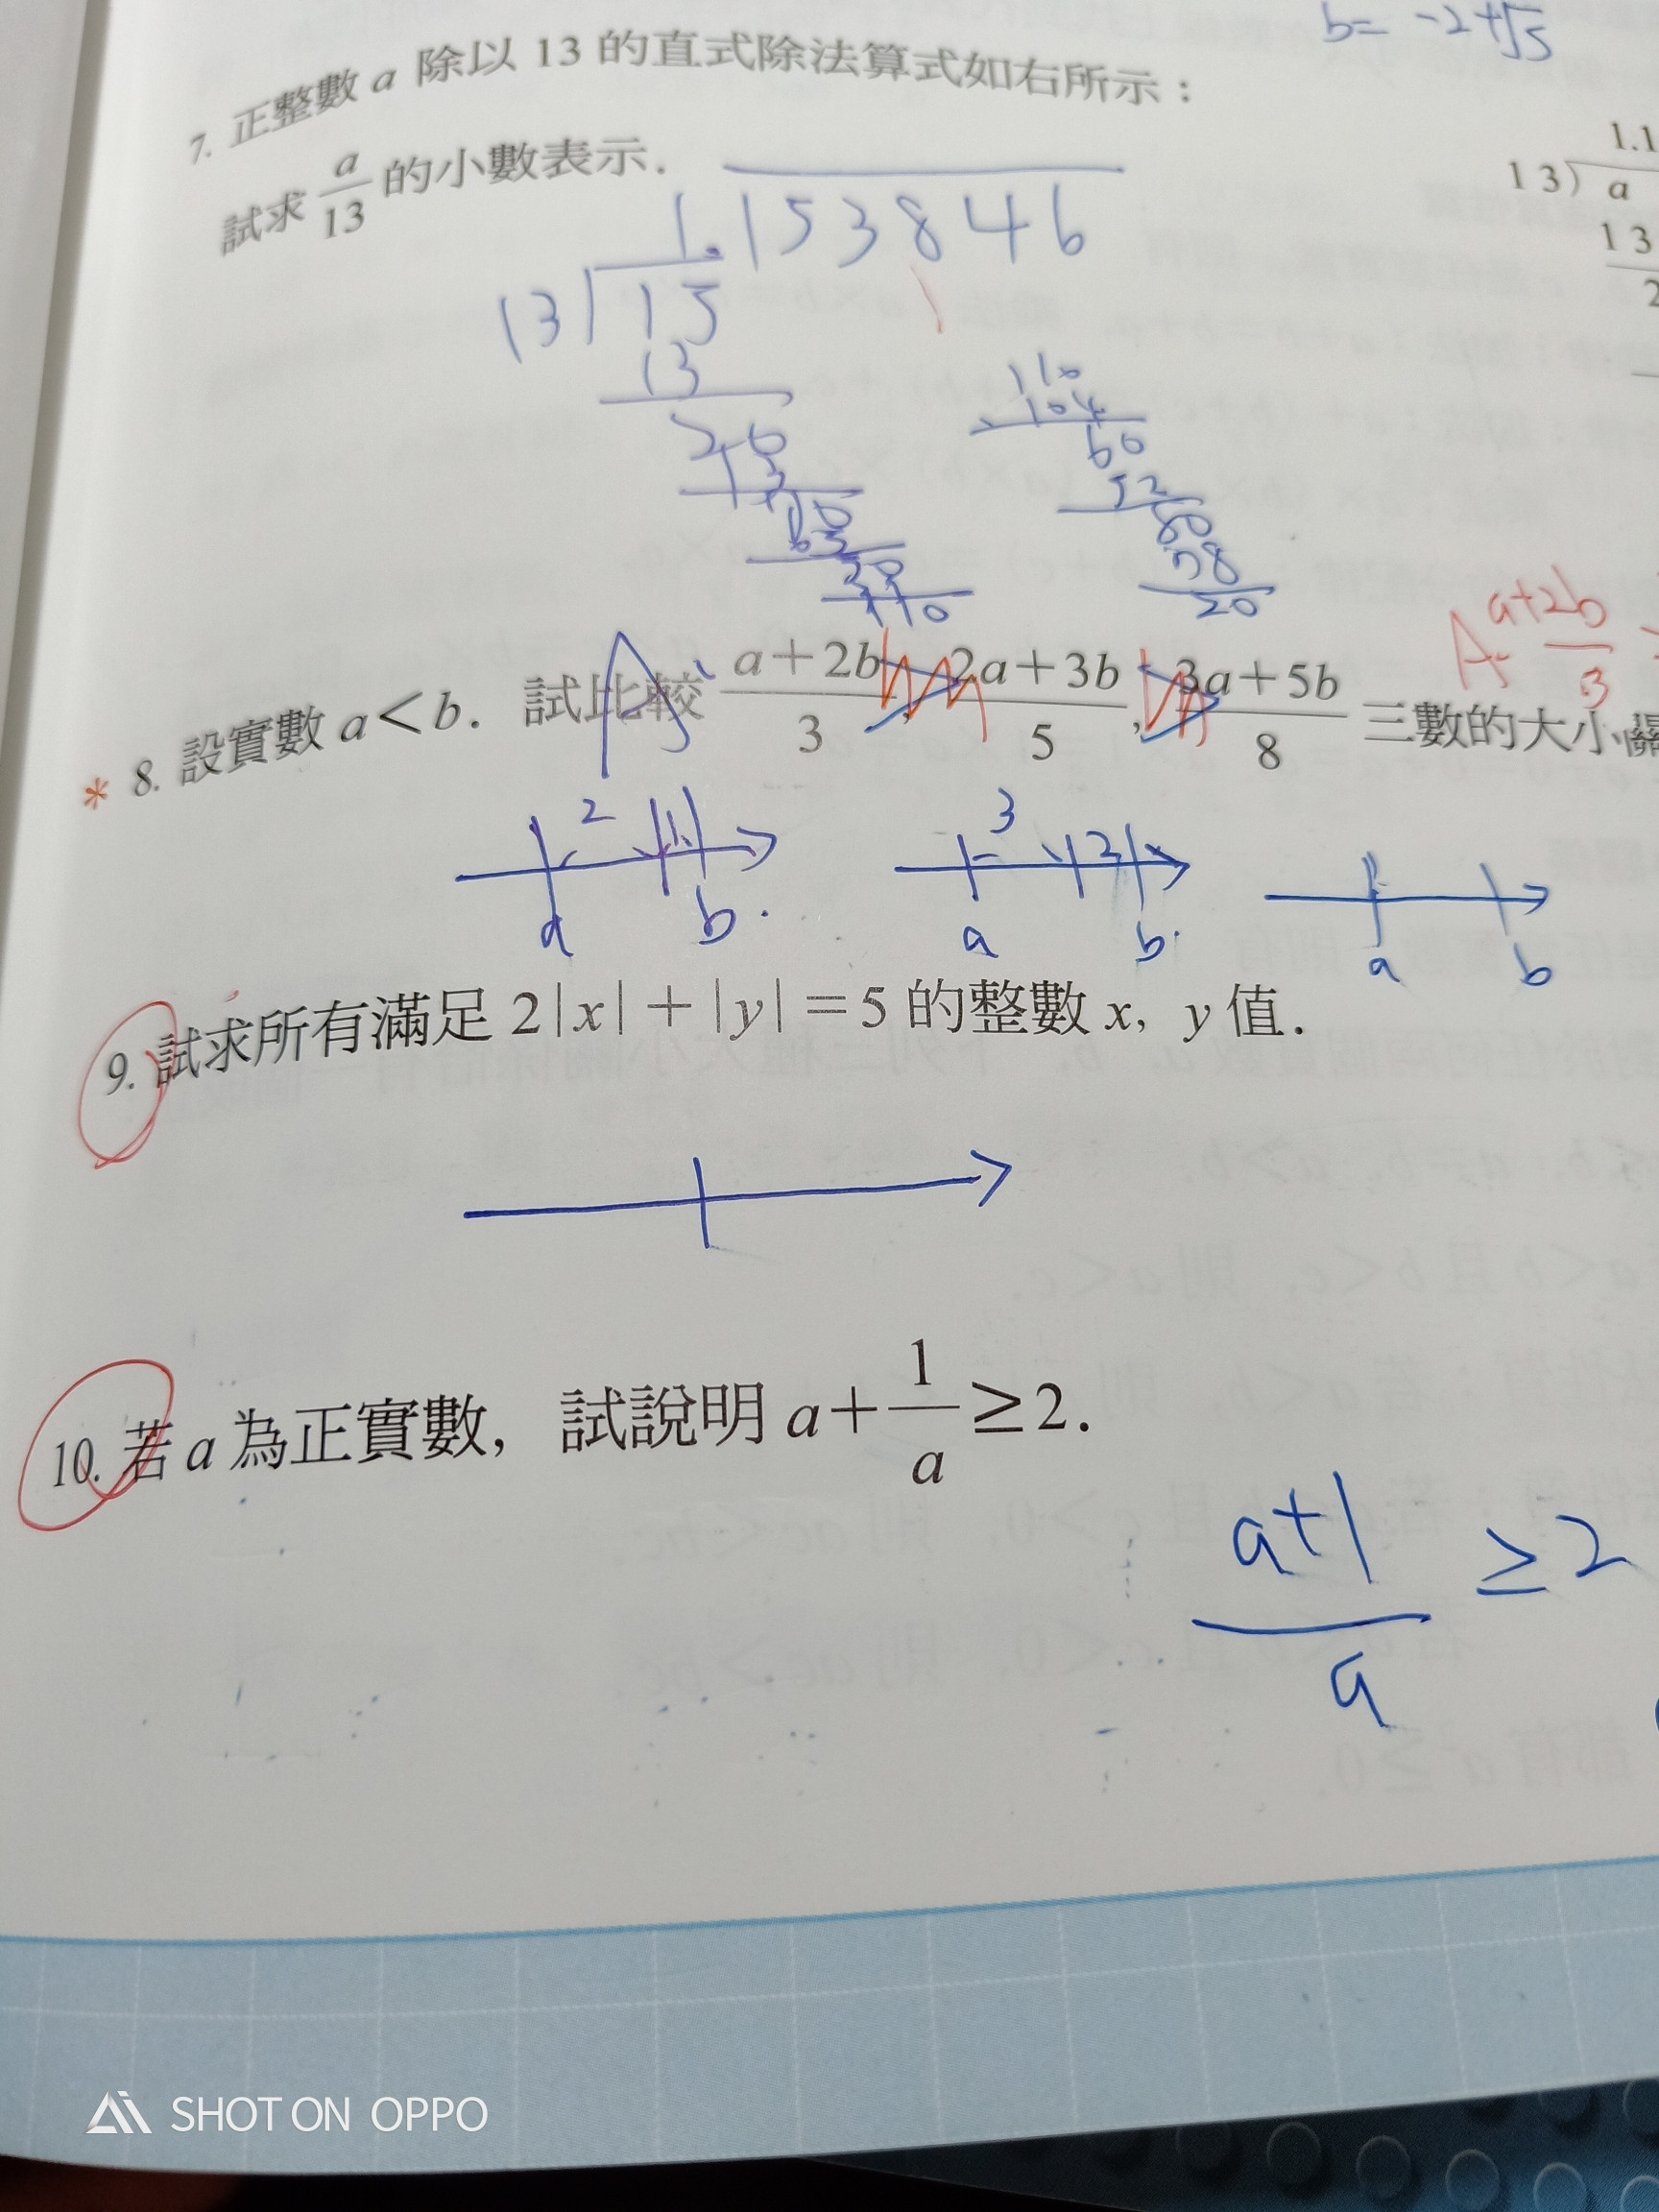 b= -2+√5
7. 正整數 a 除以 13 的直式除法算式如右所示：
試求 a/13 的小數表示．
1.1
13) a
13
2
1.153846
13) 15
13
20
13
110
104
60
52
80
78
20
* 8. 設實數 a＜b．試比較 a＋2b/3, 2a＋3b/5, 3a＋5b/8 三數的大小關
a+2b/3
2
a b.
3 2
a b.
a b
9. 試求所有滿足 2|x|＋|y|＝5 的整數 x, y 值．
10. 若 a 為正實數，試說明 a＋1/a≥2．
a+1/a ≥2
SHOT ON OPPO